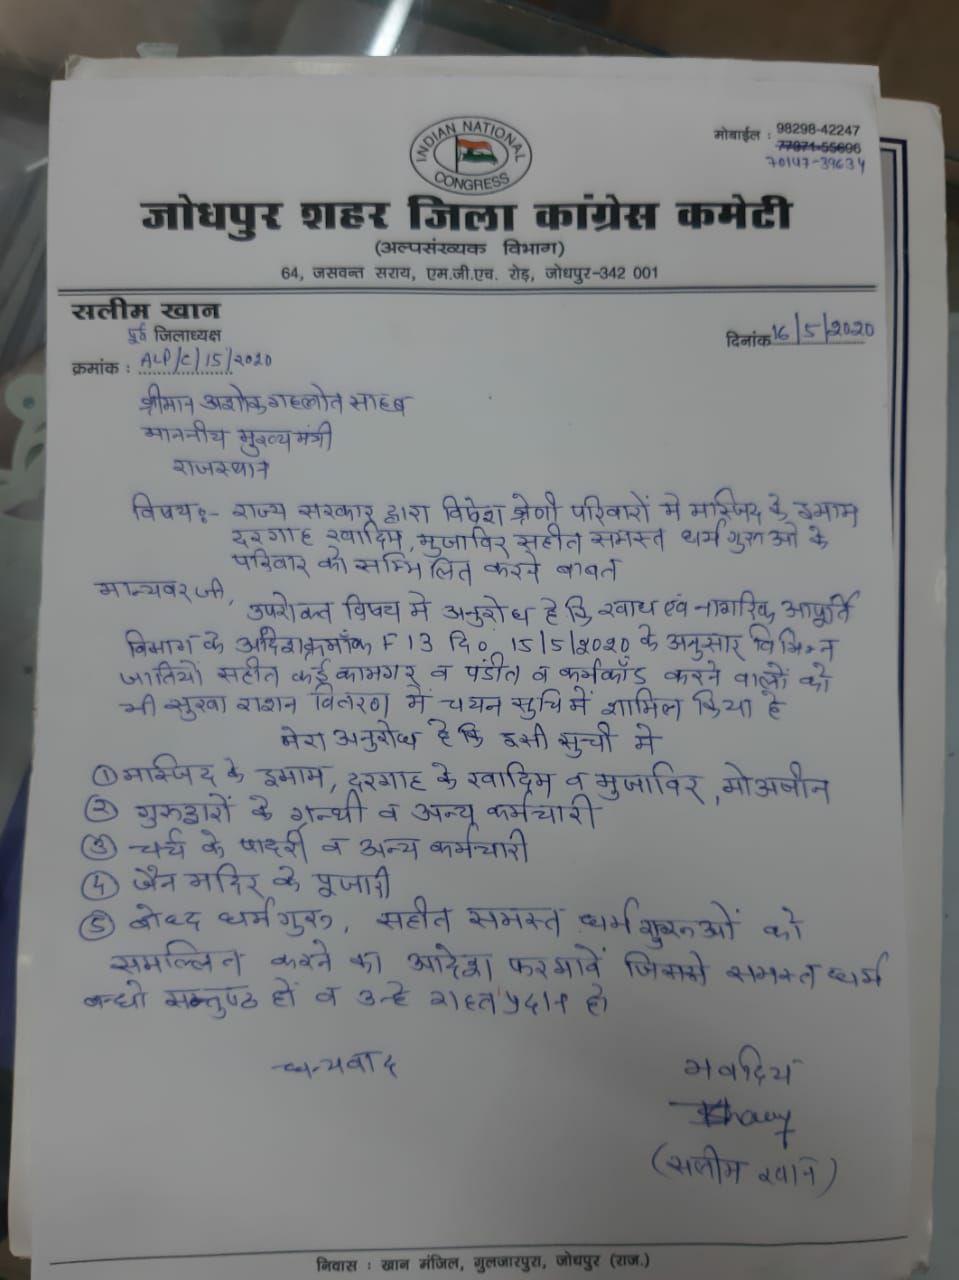 INDIAN NATIONAL CONGRESS
मोबाईल : 98298-42247
77971-55696
70147-39634
जोधपुर शहर जिला कांग्रेस कमेटी
(अल्पसंख्यक विभाग)
64, जसवन्त सराय, एम.जी.एच. रोड़, जोधपुर-342 001
सलीम खान
पूर्व जिलाध्यक्ष
दिनांक 16/5/2020
क्रमांक : ALP/C/15/2020
श्रीमान अशोक गहलोत साहब
माननीय मुख्यमंत्री
राजस्थान
विषय:- राज्य सरकार द्वारा विशेष श्रेणी परिवारों मे मस्जिद के इमाम
दरगाह खादिम, मुजाविर सहीत समस्त धर्म गुरुओ के
परिवार को सम्मिलित करने बाबत
मान्यवर जी,
उपरोक्त विषय मे अनुरोध है कि खाद्य एंव नागरिक आपूर्ति
विभाग के आदेश क्रमाँक F 13 दि० 15/5/2020 के अनुसार विभिन्न
जातियों सहीत कई कामगर व पंडीत व कर्मकाँड करने वालों को
भी सुखा राशन वितरण में चयन सुचि में शामिल किया है
मेरा अनुरोध है कि इसी सुची मे
① मस्जिद के इमाम, दरगाह के खादिम व मुजाविर, मोअजीन
② गुरुद्वारों के ग्रन्थी व अन्य कर्मचारी
③ चर्च के पादरी व अन्य कर्मचारी
④ जैन मदिर के पूजारी
⑤ बोध्द धर्म गुरु, सहीत समस्त धर्म गुरुओं को
समल्लित करने का आदेश फरमावें जिससे समस्त धर्म
बन्धो सन्तुष्ठ हों व उन्हे राहत प्रदान हो
धन्यवाद
भवदिय
(सलीम खान)
निवास : खान मंजिल, गुलजारपुरा, जोधपुर (राज.)